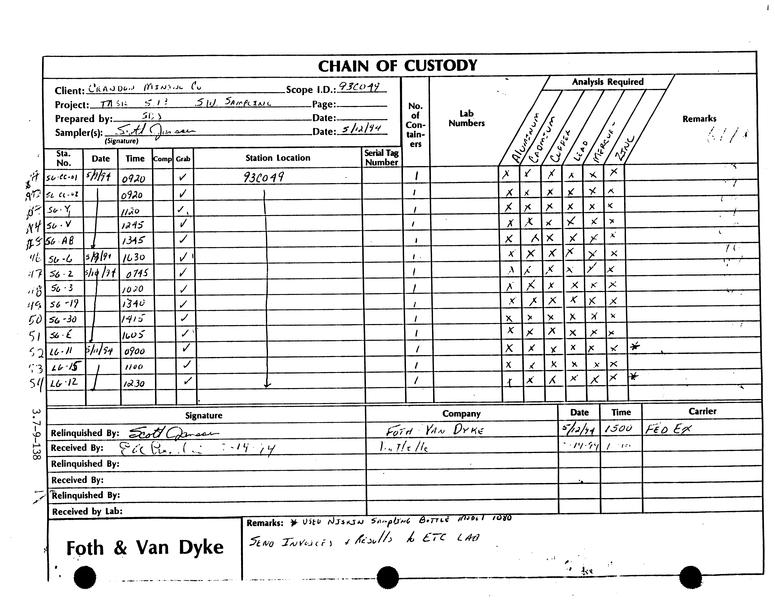 CHAIN OF CUSTODY
Client: CRANDON MINING CO Scope I.D.: 93C049
Project: TASK SW SAMPLING Page:
Prepared by: SDJ Date:
Sampler(s): Scott Jansen Date: 5/12/94
(Signature)
No. of Con-tain-ers
Lab Numbers
Analysis Required
ALUMINUM CADMIUM COPPER LEAD MERCURY ZINC
Remarks
Sta. No. Date Time Comp Grab Station Location Serial Tag Number
SG-CC-01 0920 ✓ 93C049 1 X X X X X X
SG CC-02 0920 ✓ 1 X X X X X X
SG-Y 1120 ✓ 1 X X X X X X
SG-V 1245 ✓ 1 X X X X X X
SG-AB 1345 ✓ 1 X X X X X X
46 SG-6 1630 ✓ 1 X X X X X X
47 SG-2 5/10/94 0745 ✓ 1 X X X X X X
48 SG-3 1020 ✓ 1 X X X X X X
49 SG-19 1340 ✓ 1 X X X X X X
50 SG-30 1415 ✓ 1 X X X X X X
51 SG-E 1605 ✓ 1 X X X X X X
52 LG-11 5/11/94 0900 ✓ 1 X X X X X X *
53 LG-15 1100 ✓ 1 X X X X X X
54 LG-12 1230 ✓ 1 X X X X X X *
3.7-9-138
Signature Company Date Time Carrier
Relinquished By: Scott Jansen FOTH VAN DYKE 5/12/94 1500 FED EX
Received By:
Relinquished By:
Received By:
Relinquished By:
Received by Lab:
Foth & Van Dyke
Remarks: * USED NISKIN SAMPLING BOTTLE MODEL 1080
SEND INVOICES & RESULTS to ETC LAB